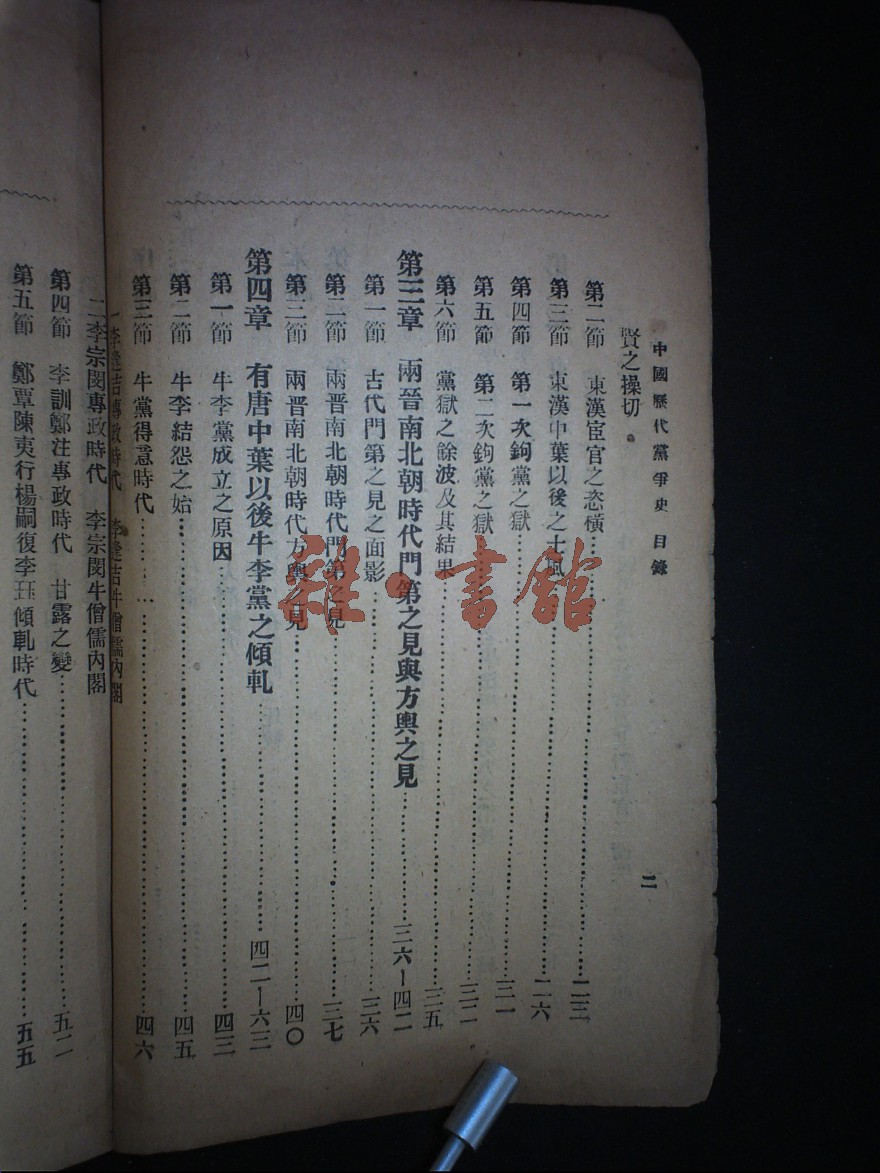 中國歷代黨爭史 目錄
二
賢之操切。
第二節 東漢宦官之恣橫……二三
第三節 東漢中葉以後之士風……二六
第四節 第一次鉤黨之獄……三一
第五節 第二次鉤黨之獄……三二
第六節 黨獄之餘波及其結果……三五
第三章 兩晉南北朝時代門第之見與方輿之見……三六—四二
第一節 古代門第之見之面影……三六
第二節 兩晉南北朝時代門第之見……三七
第三節 兩晋南北朝時代方輿之見……四〇
第四章 有唐中葉以後牛李黨之傾軋……四二—六三
第一節 牛李黨成立之原因……四三
第二節 牛李結怨之始……四五
第三節 牛黨得意時代……四六
一李逢吉專政時代 李逢吉牛僧儒內閣
二李宗閔專政時代 李宗閔牛僧儒內閣
第四節 李訓鄭注專政時代 甘露之變……五二
第五節 鄭覃陳夷行楊嗣復李珏傾軋時代……五五
雜·書館